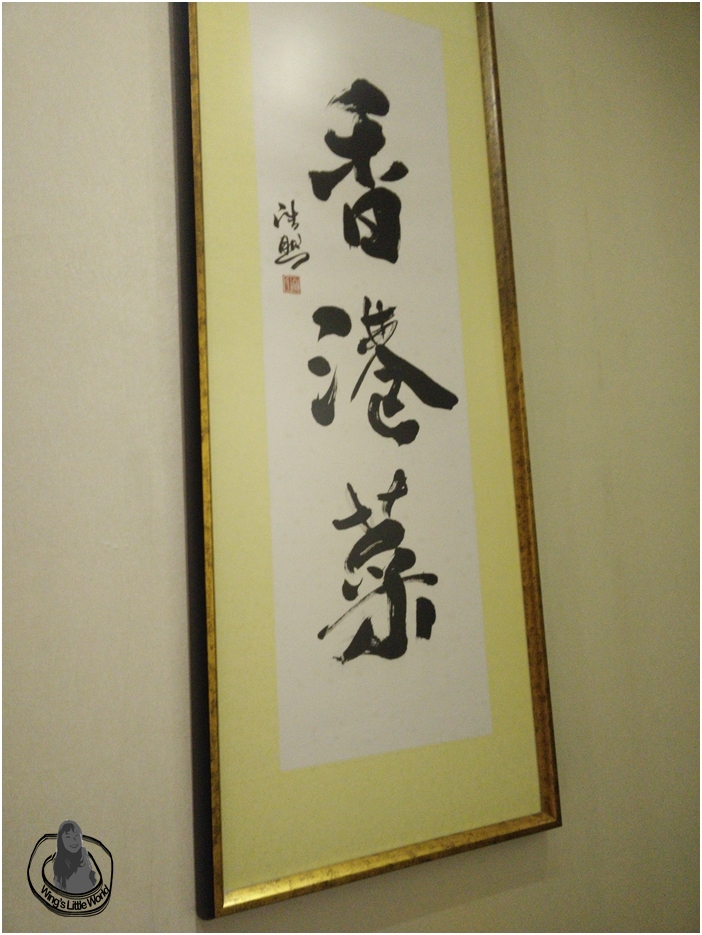 香港菜
浩熙
Wing's Little World